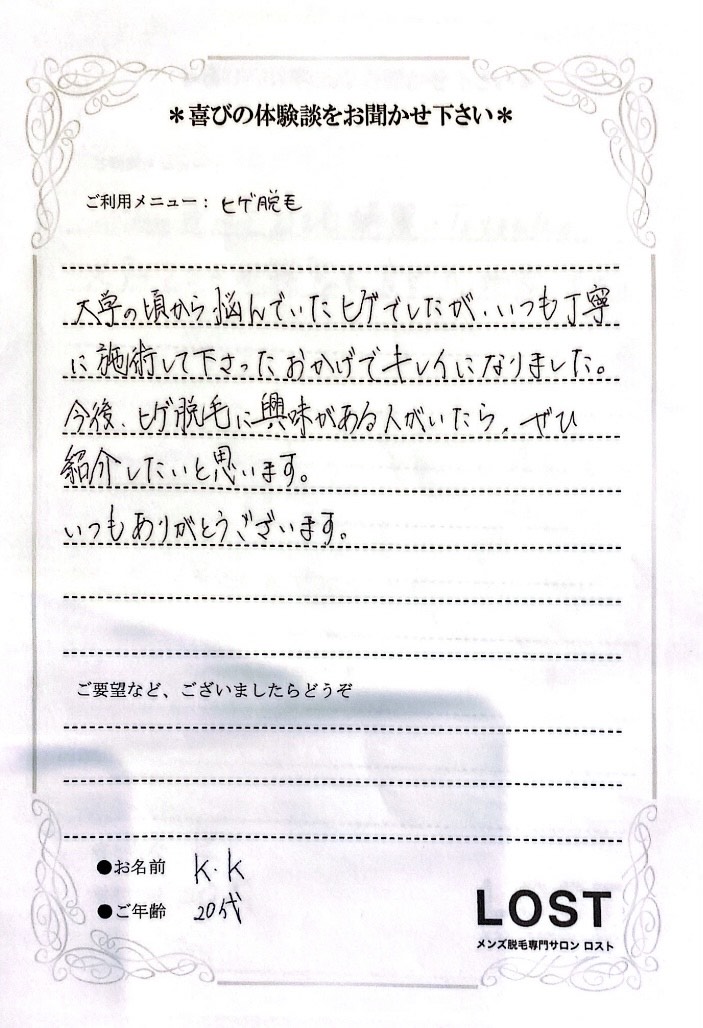 ＊喜びの体験談をお聞かせ下さい＊
ご利用メニュー： ヒゲ脱毛
大学の頃から悩んでいたヒゲでしたが、いつも丁寧
に施術して下さったおかげでキレイになりました。
今後、ヒゲ脱毛に興味がある人がいたら、ぜひ
紹介したいと思います。
いつもありがとうございます。
ご要望など、ございましたらどうぞ
●お名前 K.K
●ご年齢 20代
LOST
メンズ脱毛専門サロン ロスト